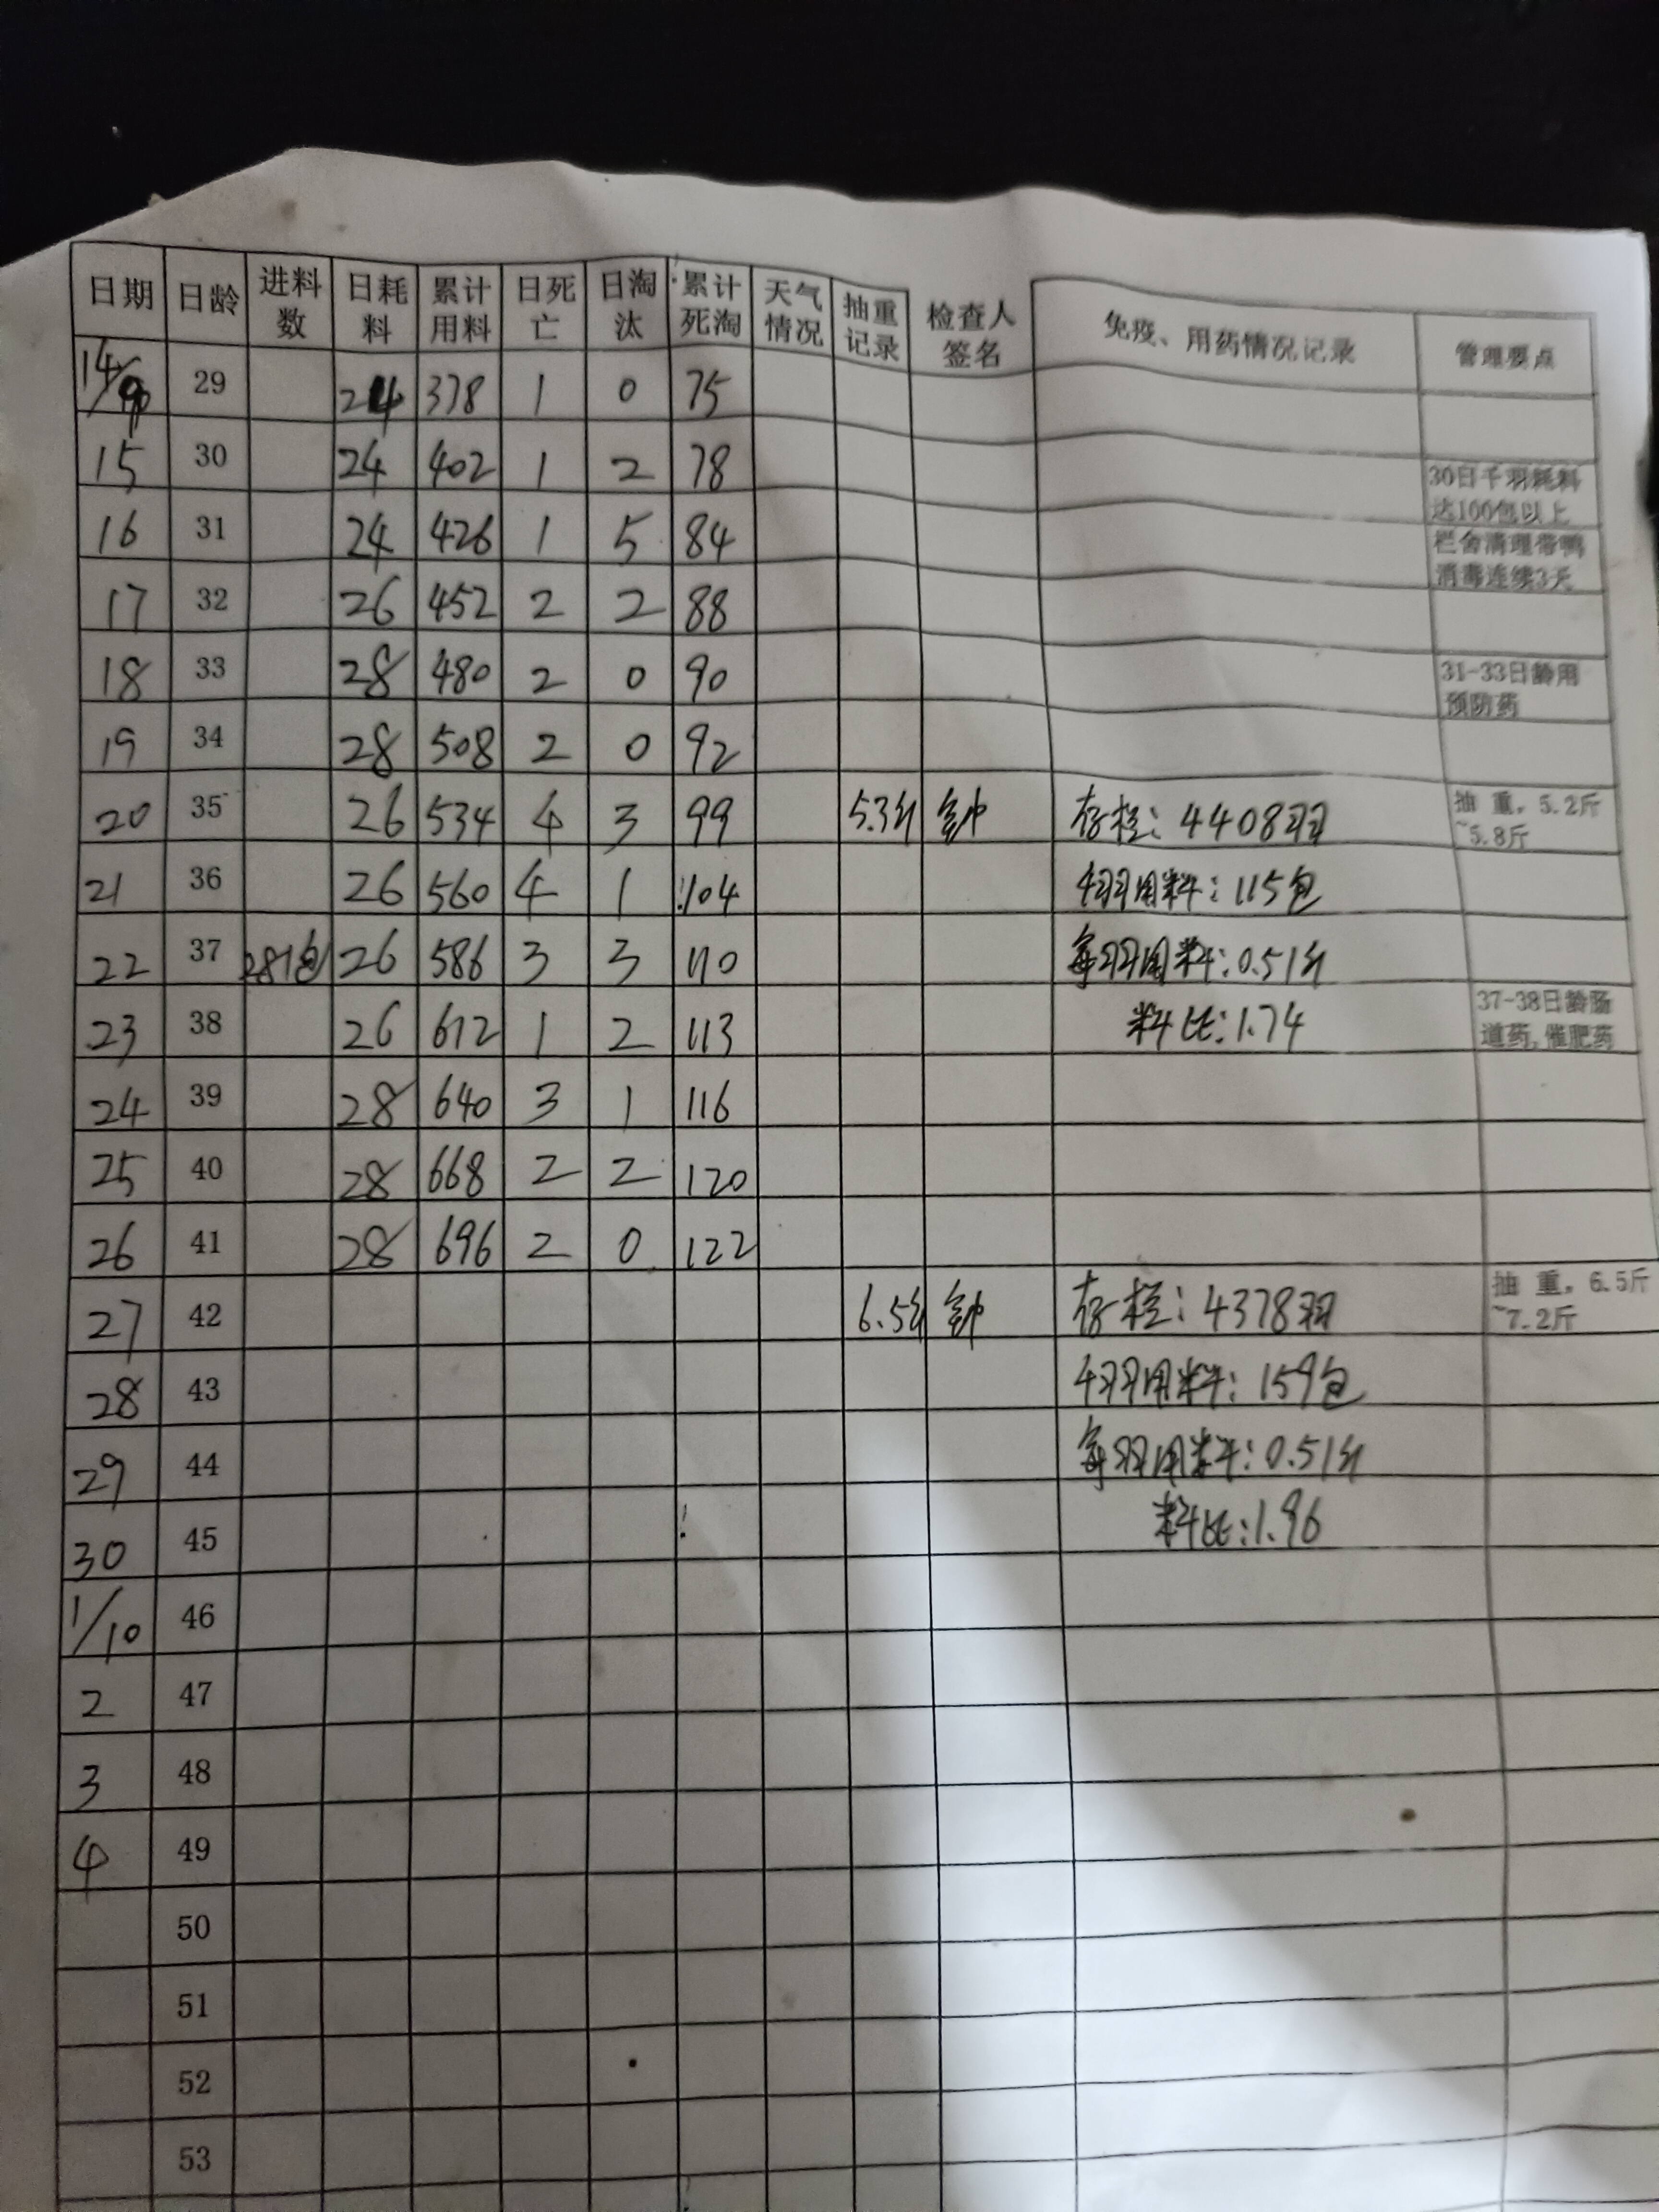 日期 日龄 进料数 日耗料 累计用料 日死亡 日淘汰 累计死淘 天气情况 抽重记录 检查人签名 免疫、用药情况记录 管理要点
14/9 29 24 378 1 0 75
15 30 24 402 1 2 78 30日千羽耗料达100包以上
16 31 24 426 1 5 84 栏舍清理带鸭消毒连续3天
17 32 26 452 2 2 88
18 33 28 480 2 0 90 31-33日龄用预防药
19 34 28 508 2 0 92
20 35 26 534 4 3 99 5.3斤 存栏：4408羽 抽重，5.2斤~5.8斤
21 36 26 560 4 1 104 千羽用料：115包
22 37 281包 26 586 3 3 110 每羽用料：0.51斤
23 38 26 612 1 2 113 料比：1.74 37-38日龄肠道药,催肥药
24 39 28 640 3 1 116
25 40 28 668 2 2 120
26 41 28 696 2 0 122
27 42 6.5斤 存栏：4378羽 抽重，6.5斤~7.2斤
28 43 千羽用料：159包
29 44 每羽用料：0.51斤
30 45 料比：1.96
1/10 46
2 47
3 48
4 49
50
51
52
53